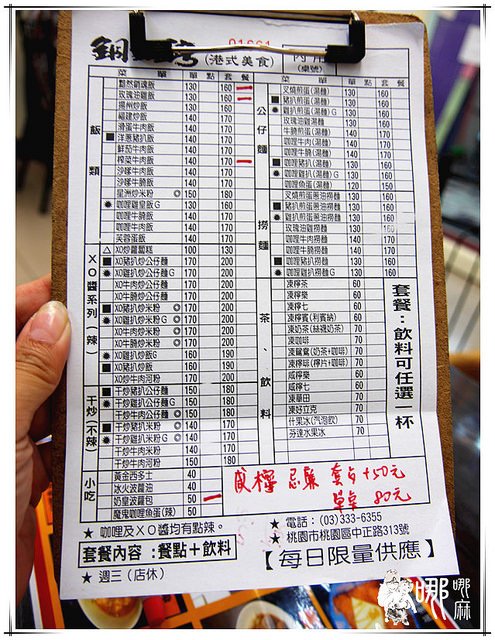 01661
銅鑼灣(港式美食)
內用
(桌號)
菜 單 單 點 套 餐
飯類
黯然銷魂飯 130 160
玫瑰油雞飯 130 160
揚州炒飯 130 160
福建炒飯 140 170
滑蛋牛肉飯 140 170
■ 洋蔥豬扒飯 140 170
鮮茄牛肉飯 140 170
榨菜牛肉飯 140 170
沙嗲牛肉飯 140 170
沙嗲牛腩飯 140 170
星洲炒米粉 ◎ 150 180
咖哩雞皇飯G 130 160
■ 咖哩豬扒飯 140 170
咖哩牛腩飯 140 170
咖哩牛肉飯 140 170
芙蓉蛋飯 140 170
XO醬系列(辣)
△ XO炒蘿蔔糕 100 130
■ XO豬扒炒公仔麵 170 200
XO雞扒炒公仔麵G 170 200
XO牛肉炒公仔麵 170 200
XO牛腩炒公仔麵 170 200
■ XO豬扒炒米粉 ◎ 170 200
XO雞扒炒米粉G ◎ 170 200
XO牛肉炒米粉 ◎ 170 200
XO牛腩炒米粉 ◎ 170 200
XO雞扒炒飯G 160 190
■ XO豬扒炒飯 160 190
XO炒牛肉河粉 170 200
干炒(不辣)
■ 干炒豬扒公仔麵 ◎ 150 180
干炒雞扒公仔麵G ◎ 150 180
干炒牛肉公仔麵 ◎ 150 180
■ 干炒豬扒米粉 ◎ 140 170
干炒雞扒米粉G ◎ 140 170
干炒牛肉米粉 140 170
干炒牛肉河粉 150 180
小吃
黃金西多士 40
冰火波蘿油 40
奶皇波蘿包 50
魔鬼咖哩魚蛋(辣) 50
菜 單 單 點 套 餐
公仔麵
叉燒煎蛋(湯麵) 130 160
■ 豬扒煎蛋(湯麵) 130 160
雞扒煎蛋(湯麵)G 130 160
玫瑰油雞湯麵 130 160
牛腩煎蛋(湯麵) 140 170
咖哩牛肉(湯麵) 140 170
咖哩牛腩(湯麵) 140 170
■ 咖哩豬扒(湯麵) 130 160
咖哩雞扒(湯麵)G 130 160
咖哩魚蛋(湯麵) 120 150
撈麵
叉燒煎蛋蔥油撈麵 130 160
■ 豬扒煎蛋蔥油撈麵 130 160
雞扒煎蛋蔥油撈麵 130 160
玫瑰油雞撈麵 130 160
咖哩牛肉撈麵 140 170
咖哩牛腩撈麵 140 170
■ 咖哩豬扒撈麵 130 160
咖哩雞扒撈麵G 130 160
茶、飲料
凍檸茶 60
凍檸樂 60
凍檸七 60
凍檸賓(利賓納) 60
凍奶茶(絲襪奶茶) 70
凍咖啡 70
凍鴛鴦(奶茶+咖啡) 70
凍檸啡(檸片+咖啡) 70
鹹檸樂 70
鹹檸七 70
凍華田 70
凍好立克 70
什果冰(汽泡飲) 70
芬達水果冰 70
套餐:飲料可任選一杯
鹹檸 忌廉 套台+50元
單点 80元
★ 咖哩及XO醬均有點辣。
套餐內容:餐點+飲料
★ 週三(店休)
★ 電話:(03)333-6355
★ 桃園市桃園區中正路313號
【每日限量供應】
哪哪麻